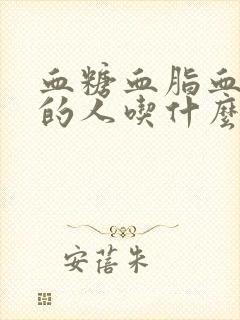 血糖血脂血
的人喫什麼
安蓓朱